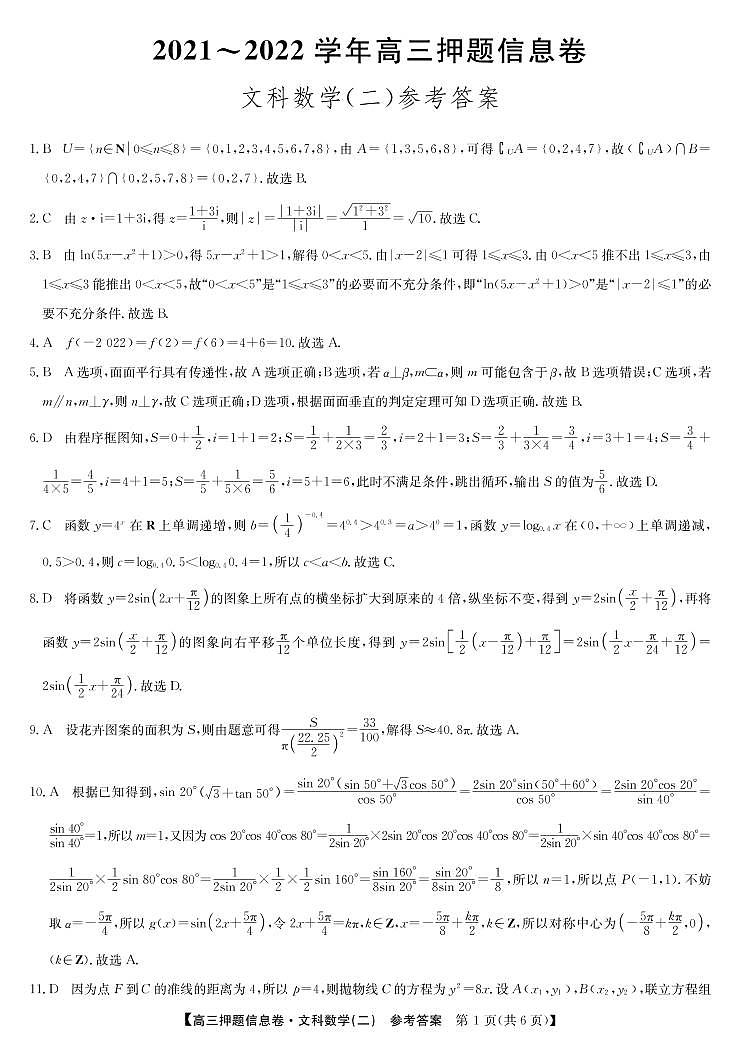 2021～2022 学年高三押题信息卷
文科数学(二)参考答案
1. B U={n∈N|0≤n≤8}={0,1,2,3,4,5,6,7,8},由 A={1,3,5,6,8},可得∁UA={0,2,4,7},故(∁UA)∩B=
{0,2,4,7}∩{0,2,5,7,8}={0,2,7}.故选 B.
2. C 由 z·i=1+3i,得 z=\frac{1+3i}{i},则|z|=\frac{|1+3i|}{|i|}=\frac{\sqrt{1²+3²}}{1}=\sqrt{10}.故选 C.
3. B 由 ln(5x-x²+1)>0,得 5x-x²+1>1,解得 0<x<5.由|x-2|≤1 可得 1≤x≤3.由 0<x<5 推不出 1≤x≤3,由
1≤x≤3 能推出 0<x<5,故“0<x<5”是“1≤x≤3”的必要而不充分条件,即“ln(5x-x²+1)>0”是“|x-2|≤1”的必
要不充分条件.故选 B.
4. A f(-2 022)=f(2)=f(6)=4+6=10.故选 A.
5. B A 选项,面面平行具有传递性,故 A 选项正确;B 选项,若 α⊥β,m⊂α,则 m 可能包含于 β,故 B 选项错误;C 选项,若
m∥n,m⊥γ,则 n⊥γ,故 C 选项正确;D 选项,根据面面垂直的判定定理可知 D 选项正确.故选 B.
6. D 由程序框图知,S=0+\frac{1}{2},i=1+1=2;S=\frac{1}{2}+\frac{1}{2×3}=\frac{2}{3},i=2+1=3;S=\frac{2}{3}+\frac{1}{3×4}=\frac{3}{4},i=3+1=4;S=\frac{3}{4}+
\frac{1}{4×5}=\frac{4}{5},i=4+1=5;S=\frac{4}{5}+\frac{1}{5×6}=\frac{5}{6},i=5+1=6,此时不满足条件,跳出循环,输出 S 的值为\frac{5}{6}.故选 D.
7. C 函数 y=4^x 在 R 上单调递增,则 b=(\frac{1}{4})^{-0.4}=4^{0.4}>4^{0.3}=a>4^0=1,函数 y=log_{0.4}x 在(0,+∞)上单调递减,
0.5>0.4,则 c=log_{0.4}0.5<log_{0.4}0.4=1,所以 c<a<b.故选 C.
8. D 将函数 y=2sin(2x+\frac{π}{12})的图象上所有点的横坐标扩大到原来的 4 倍,纵坐标不变,得到 y=2sin(\frac{x}{2}+\frac{π}{12}),再将
函数 y=2sin(\frac{x}{2}+\frac{π}{12})的图象向右平移\frac{π}{12}个单位长度,得到 y=2sin[\frac{1}{2}(x-\frac{π}{12})+\frac{π}{12}]=2sin(\frac{1}{2}x-\frac{π}{24}+\frac{π}{12})=
2sin(\frac{1}{2}x+\frac{π}{24}).故选 D.
9. A 设花卉图案的面积为 S,则由题意可得\frac{S}{π(\frac{22.25}{2})²}=\frac{33}{100},解得 S≈40.8π.故选 A.
10. A 根据已知得到,sin 20°(\sqrt{3}+tan 50°)=\frac{sin 20°(sin 50°+\sqrt{3}cos 50°)}{cos 50°}=\frac{2sin 20°sin(50°+60°)}{cos 50°}=\frac{2sin 20°cos 20°}{sin 40°}=
\frac{sin 40°}{sin 40°}=1,所以 m=1,又因为 cos 20°cos 40°cos 80°=\frac{1}{2sin 20°}×2sin 20°cos 20°cos 40°cos 80°=\frac{1}{2sin 20°}×sin 40°cos 40°cos 80°=
\frac{1}{2sin 20°}×\frac{1}{2}sin 80°cos 80°=\frac{1}{2sin 20°}×\frac{1}{2}×\frac{1}{2}sin 160°=\frac{sin 160°}{8sin 20°}=\frac{sin 20°}{8sin 20°}=\frac{1}{8},所以 n=1,所以点 P(-1,1).不妨
取 α=-\frac{5π}{4},所以 g(x)=sin(2x+\frac{5π}{4}),令 2x+\frac{5π}{4}=kπ,k∈Z,x=-\frac{5π}{8}+\frac{kπ}{2},k∈Z,所以对称中心为(-\frac{5π}{8}+\frac{kπ}{2},0),
(k∈Z).故选 A.
11. D 因为点 F 到 C 的准线的距离为 4,所以 p=4,则抛物线 C 的方程为 y²=8x.设 A(x₁,y₁),B(x₂,y₂),联立方程组
【高三押题信息卷·文科数学(二) 参考答案 第 1 页(共 6 页)】